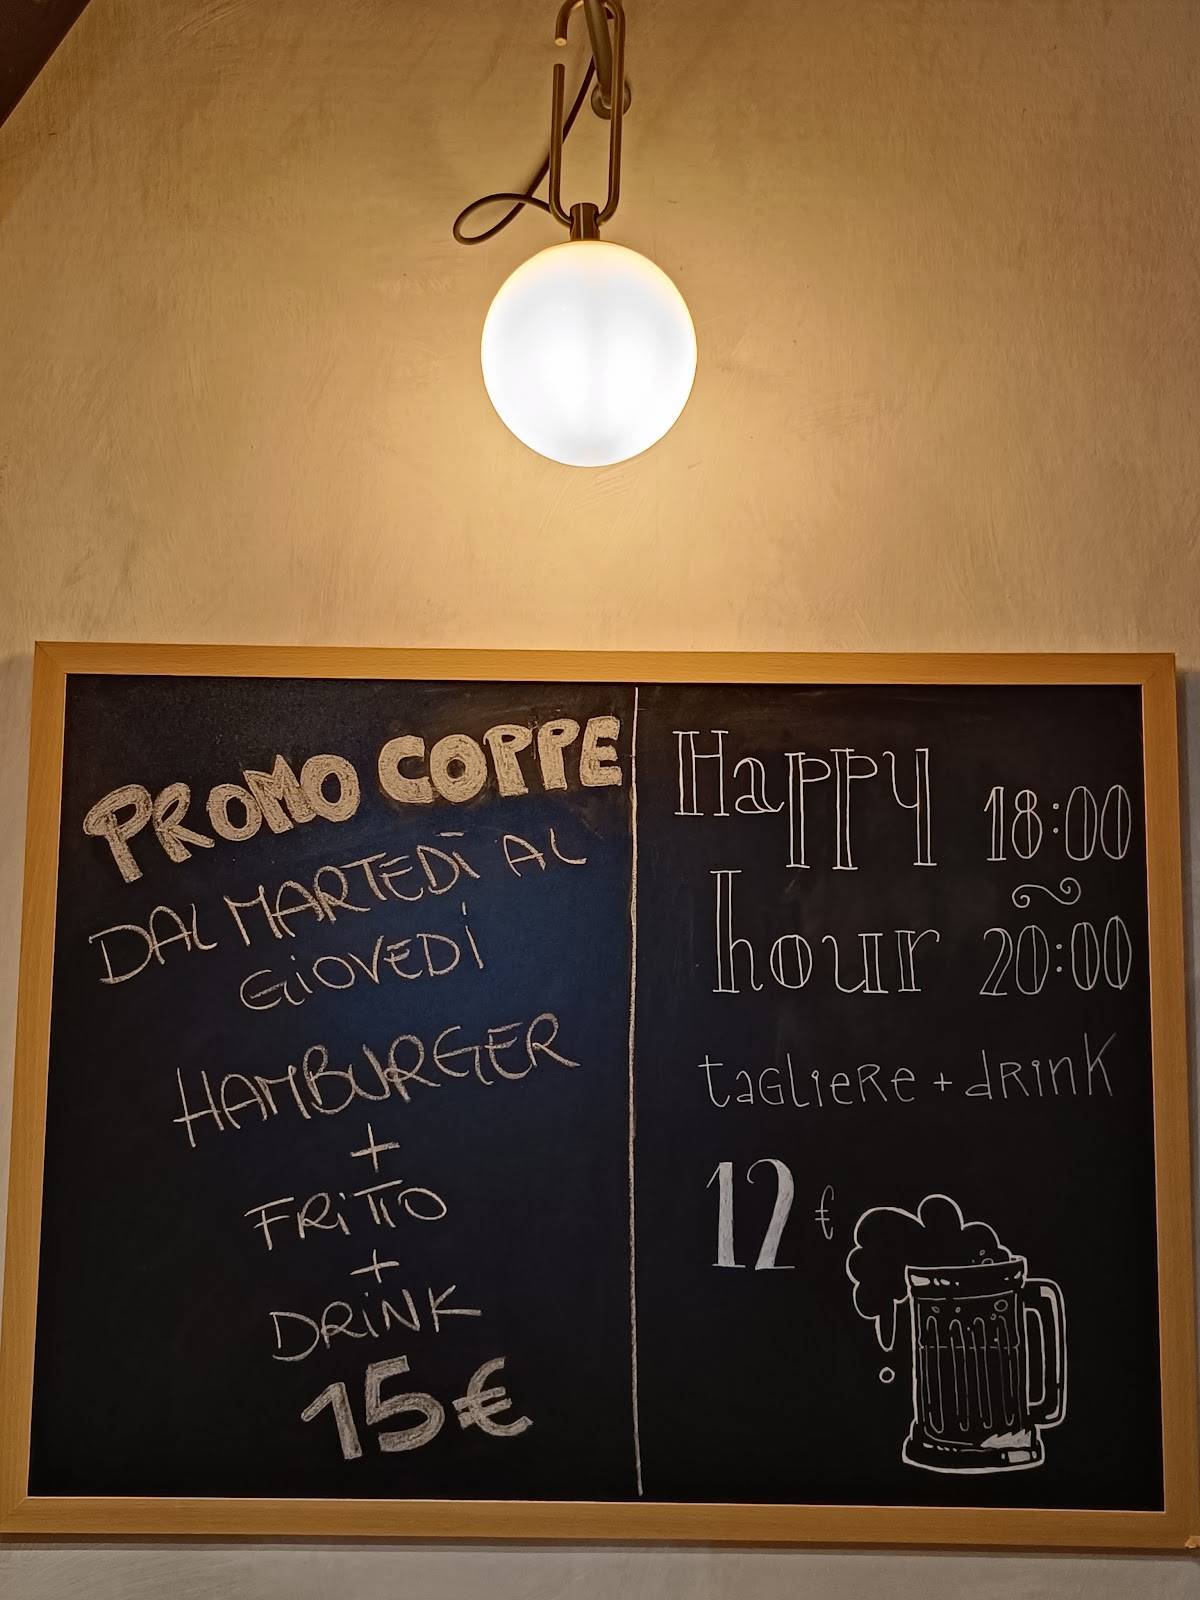 PROMO COPPE
DAL MARTEDÌ AL
GIOVEDÌ
HAMBURGER
+
FRITTO
+
DRINK
15€
Happy
hour
18:00
~
20:00
tagliere + drink
12 €